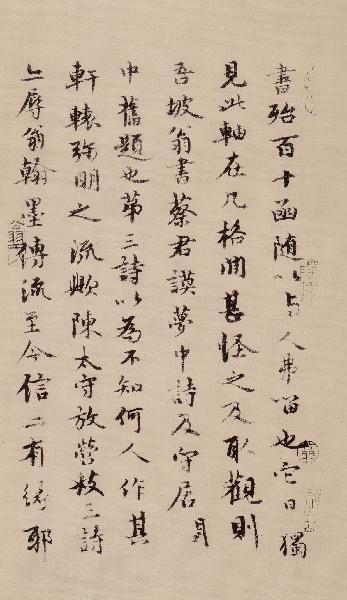 書殆百十函随以与人弗留也它日獨
見此軸在几格間甚怪之及取觀則
吾坡翁書蔡君謨夢中詩及守居
中舊題也第三詩以為不知何人作其
軒轅弥明之流歟陳太守放營妓三詩
亦辱翁翰墨傳流至今信亦有緣耶